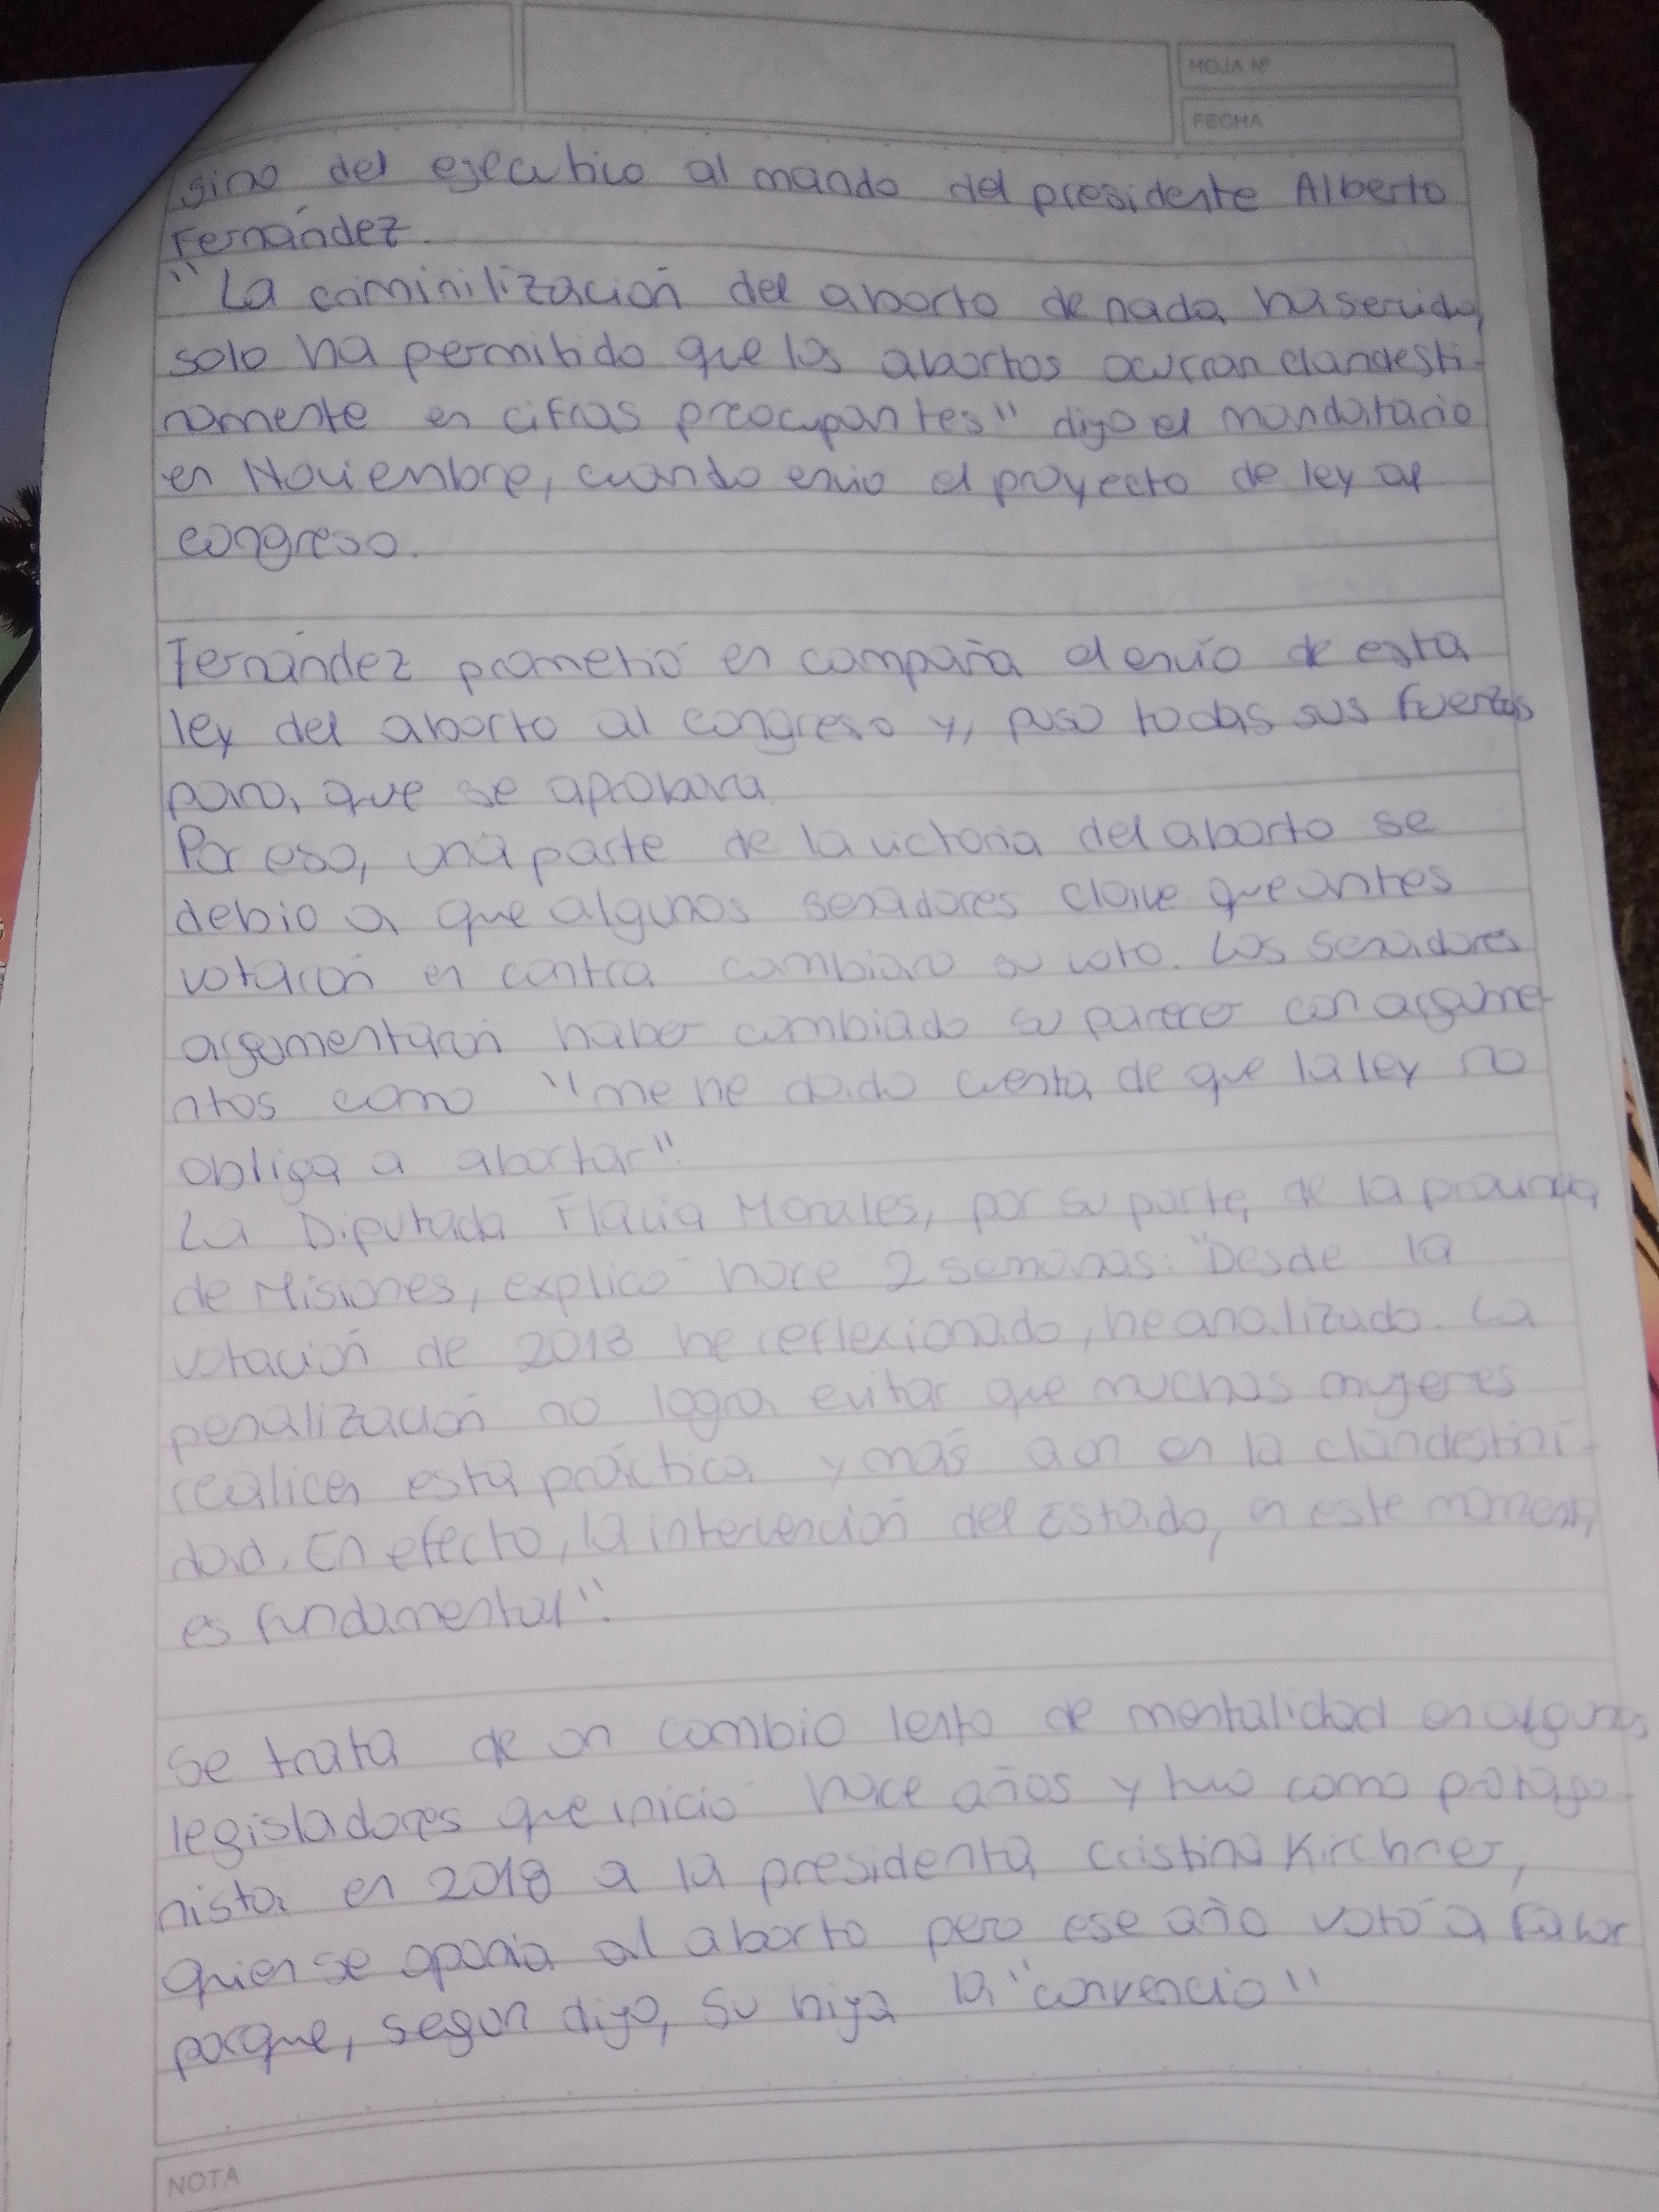 HOJA Nº
FECHA
sino del ejecutico al mando del presidente Alberto
Fernández.
"La criminilización del aborto de nada ha servido,
solo ha permitido que los abortos ocurran clandesti-
namente en cifras preocupantes" dijo el mandatario
en Noviembre, cuando envio el proyecto de ley al
congreso.
Fernández prometió en campaña el envío de esta
ley del aborto al congreso y, puso todas sus fuerzas
para, que se aprobara.
Por eso, una parte de la victoria del aborto se
debio a que algunos senadores clave que antes
votarón en contra cambiaro su voto. Los senadores
argumentarón haber cambiado su parecer con argume-
ntos como "me he dado cuenta de que la ley no
obliga a abortar".
La Diputada Flavia Morales, por su parte, de la provincia
de Misiones, explicó hace 2 semanas: "Desde la
votación de 2018 he reflexionado, he analizado. La
penalización no logra evitar que muchas mujeres
realicen esta práctica y más aun en la clandestini-
dad. En efecto, la intervención del Estado, en este momento,
es fundamental".
Se trata de un cambio lento de mentalidad en algunos
legisladores que inició hace años y tuvo como protago-
nista en 2018 a la presidenta Cristina Kirchner,
quien se oponia al aborto pero ese año votó a favor
porque, segun dijo, su hija la "convencio"
NOTA